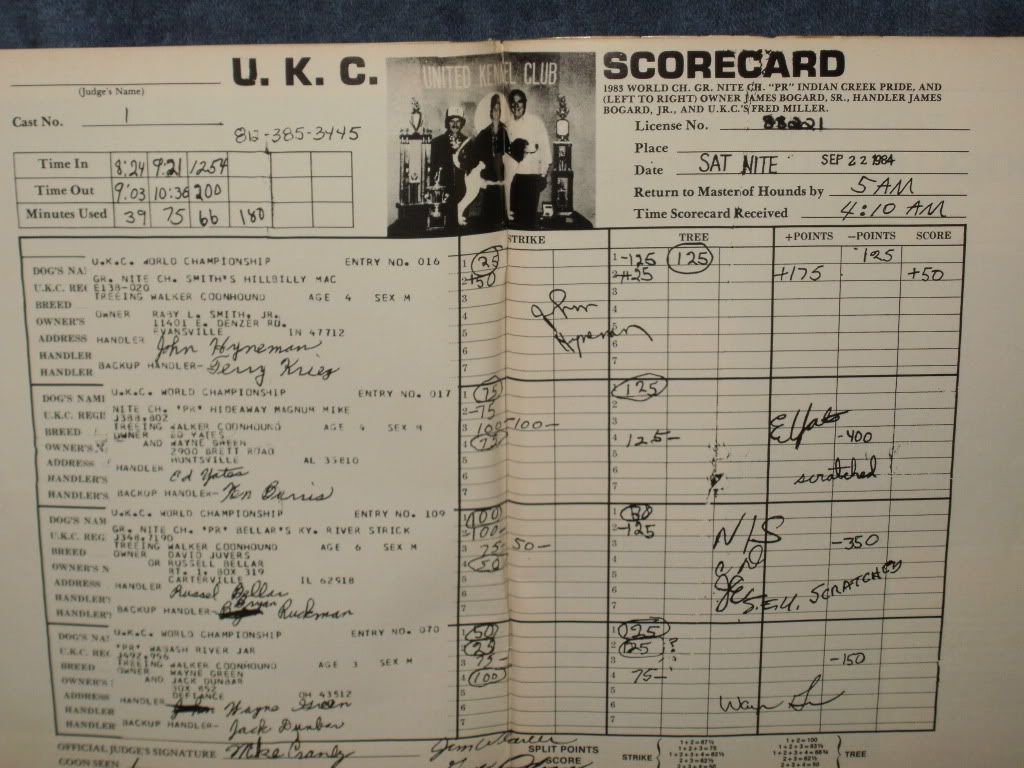 U. K. C. SCORECARD
UNITED KENNEL CLUB
(Judge's Name)
Cast No. 1
812-385-3445
1983 WORLD CH. GR. NITE CH. "PR" INDIAN CREEK PRIDE, AND
(LEFT TO RIGHT) OWNER JAMES BOGARD, SR., HANDLER JAMES
BOGARD, JR., AND U.K.C.'S FRED MILLER.
License No.
Place
Date SAT NITE SEP 22 1984
Return to Master of Hounds by 5 AM
Time Scorecard Received 4:10 AM
Time In 8:24 9:21 1254
Time Out 9:03 10:36 200
Minutes Used 39 75 66 180
STRIKE TREE +POINTS –POINTS SCORE
U.K.C. WORLD CHAMPIONSHIP ENTRY NO. 016
DOG'S NA
GR. NITE CH. SMITH'S HILLBILLY MAC
U.K.C. RE E138-020
BREED TREEING WALKER COONHOUND AGE 4 SEX M
OWNER'S OWNER RABY L. SMITH, JR.
11401 E. DENZER RD.
ADDRESS EVANSVILLE IN 47712
HANDLER HANDLER John Hyneman
HANDLER BACKUP HANDLER- Terry
1 25 1 -125 125 125
2 +50 2 +25 +175 +50
3 3
4 4
5 5
6 6
7 7
John
Hyneman
U.K.C. WORLD CHAMPIONSHIP ENTRY NO. 017
DOG'S NAM
NITE CH. "PR" HIDEAWAY MAGNUM MIKE
U.K.C. REGI J388,802
BREED TREEING WALKER COONHOUND AGE 4 SEX M
OWNER ED YATES
OWNER'S N AND WAYNE GREEN
2900 BRETT ROAD
ADDRESS HUNTSVILLE AL 35810
HANDLER'S HANDLER Ed Yates
HANDLER'S BACKUP HANDLER- Ken Burris
1 75 1 125
2 -75 2
3 100 -100- 3
4 75 4 125-
-400
5 5
scratched
6 6
7 7
U.K.C. WORLD CHAMPIONSHIP ENTRY NO. 109
DOG'S NAM
GR. NITE CH. "PR" BELLAR'S KY. RIVER STRICK
U.K.C. REG J348,7190
BREED TREEING WALKER COONHOUND AGE 6 SEX M
OWNER DAVID JUVERS
OWNER'S N OR RUSSELL BELLAR
RT. 1, BOX 319
ADDRESS CARTERVILLE IL 62918
HANDLER' HANDLER Russel Bellar
Bryan
HANDLER' BACKUP HANDLER- Ruckman
1 100 1
2 -100- 2 -125
N/S
3 75- 50- 3 -350
4 50 4
5 5
6 6
7 7
SCRATCHED
U.K.C. WORLD CHAMPIONSHIP ENTRY NO. 070
DOG'S NA
"PR" WABASH RIVER JAR
U.K.C. REG J492,956
BREED TREEING WALKER COONHOUND AGE 3 SEX M
OWNER WAYNE GREEN
OWNER'S AND JACK DUNBAR
BOX 852
ADDRESS DEFIANCE OH 43512
HANDLER HANDLER Wayne Green
HANDLER BACKUP HANDLER- Jack Dunbar
1 50 1 125
2 25 2 125 ?
3 75- 3 -150
4 100 4 75-
5 5
6 6
7 7
OFFICIAL JUDGE'S SIGNATURE
COON SEEN
SPLIT POINTS
SCORE
STRIKE TREE
1 + 2 = 87½
1 + 2 + 3 = 75
1 + 2 = 100